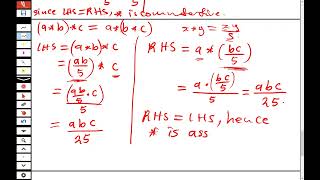 since LHS=RHS, * is commutative.
(a*b)*c = a*(b*c) x*y = xy/5
LHS = (a*b)*c
= (ab/5) * c
= (ab/5 · c)/5
= abc/25
RHS = a * (bc/5)
= a·(bc/5)/5 = abc/25.
RHS = LHS, hence
* is ass